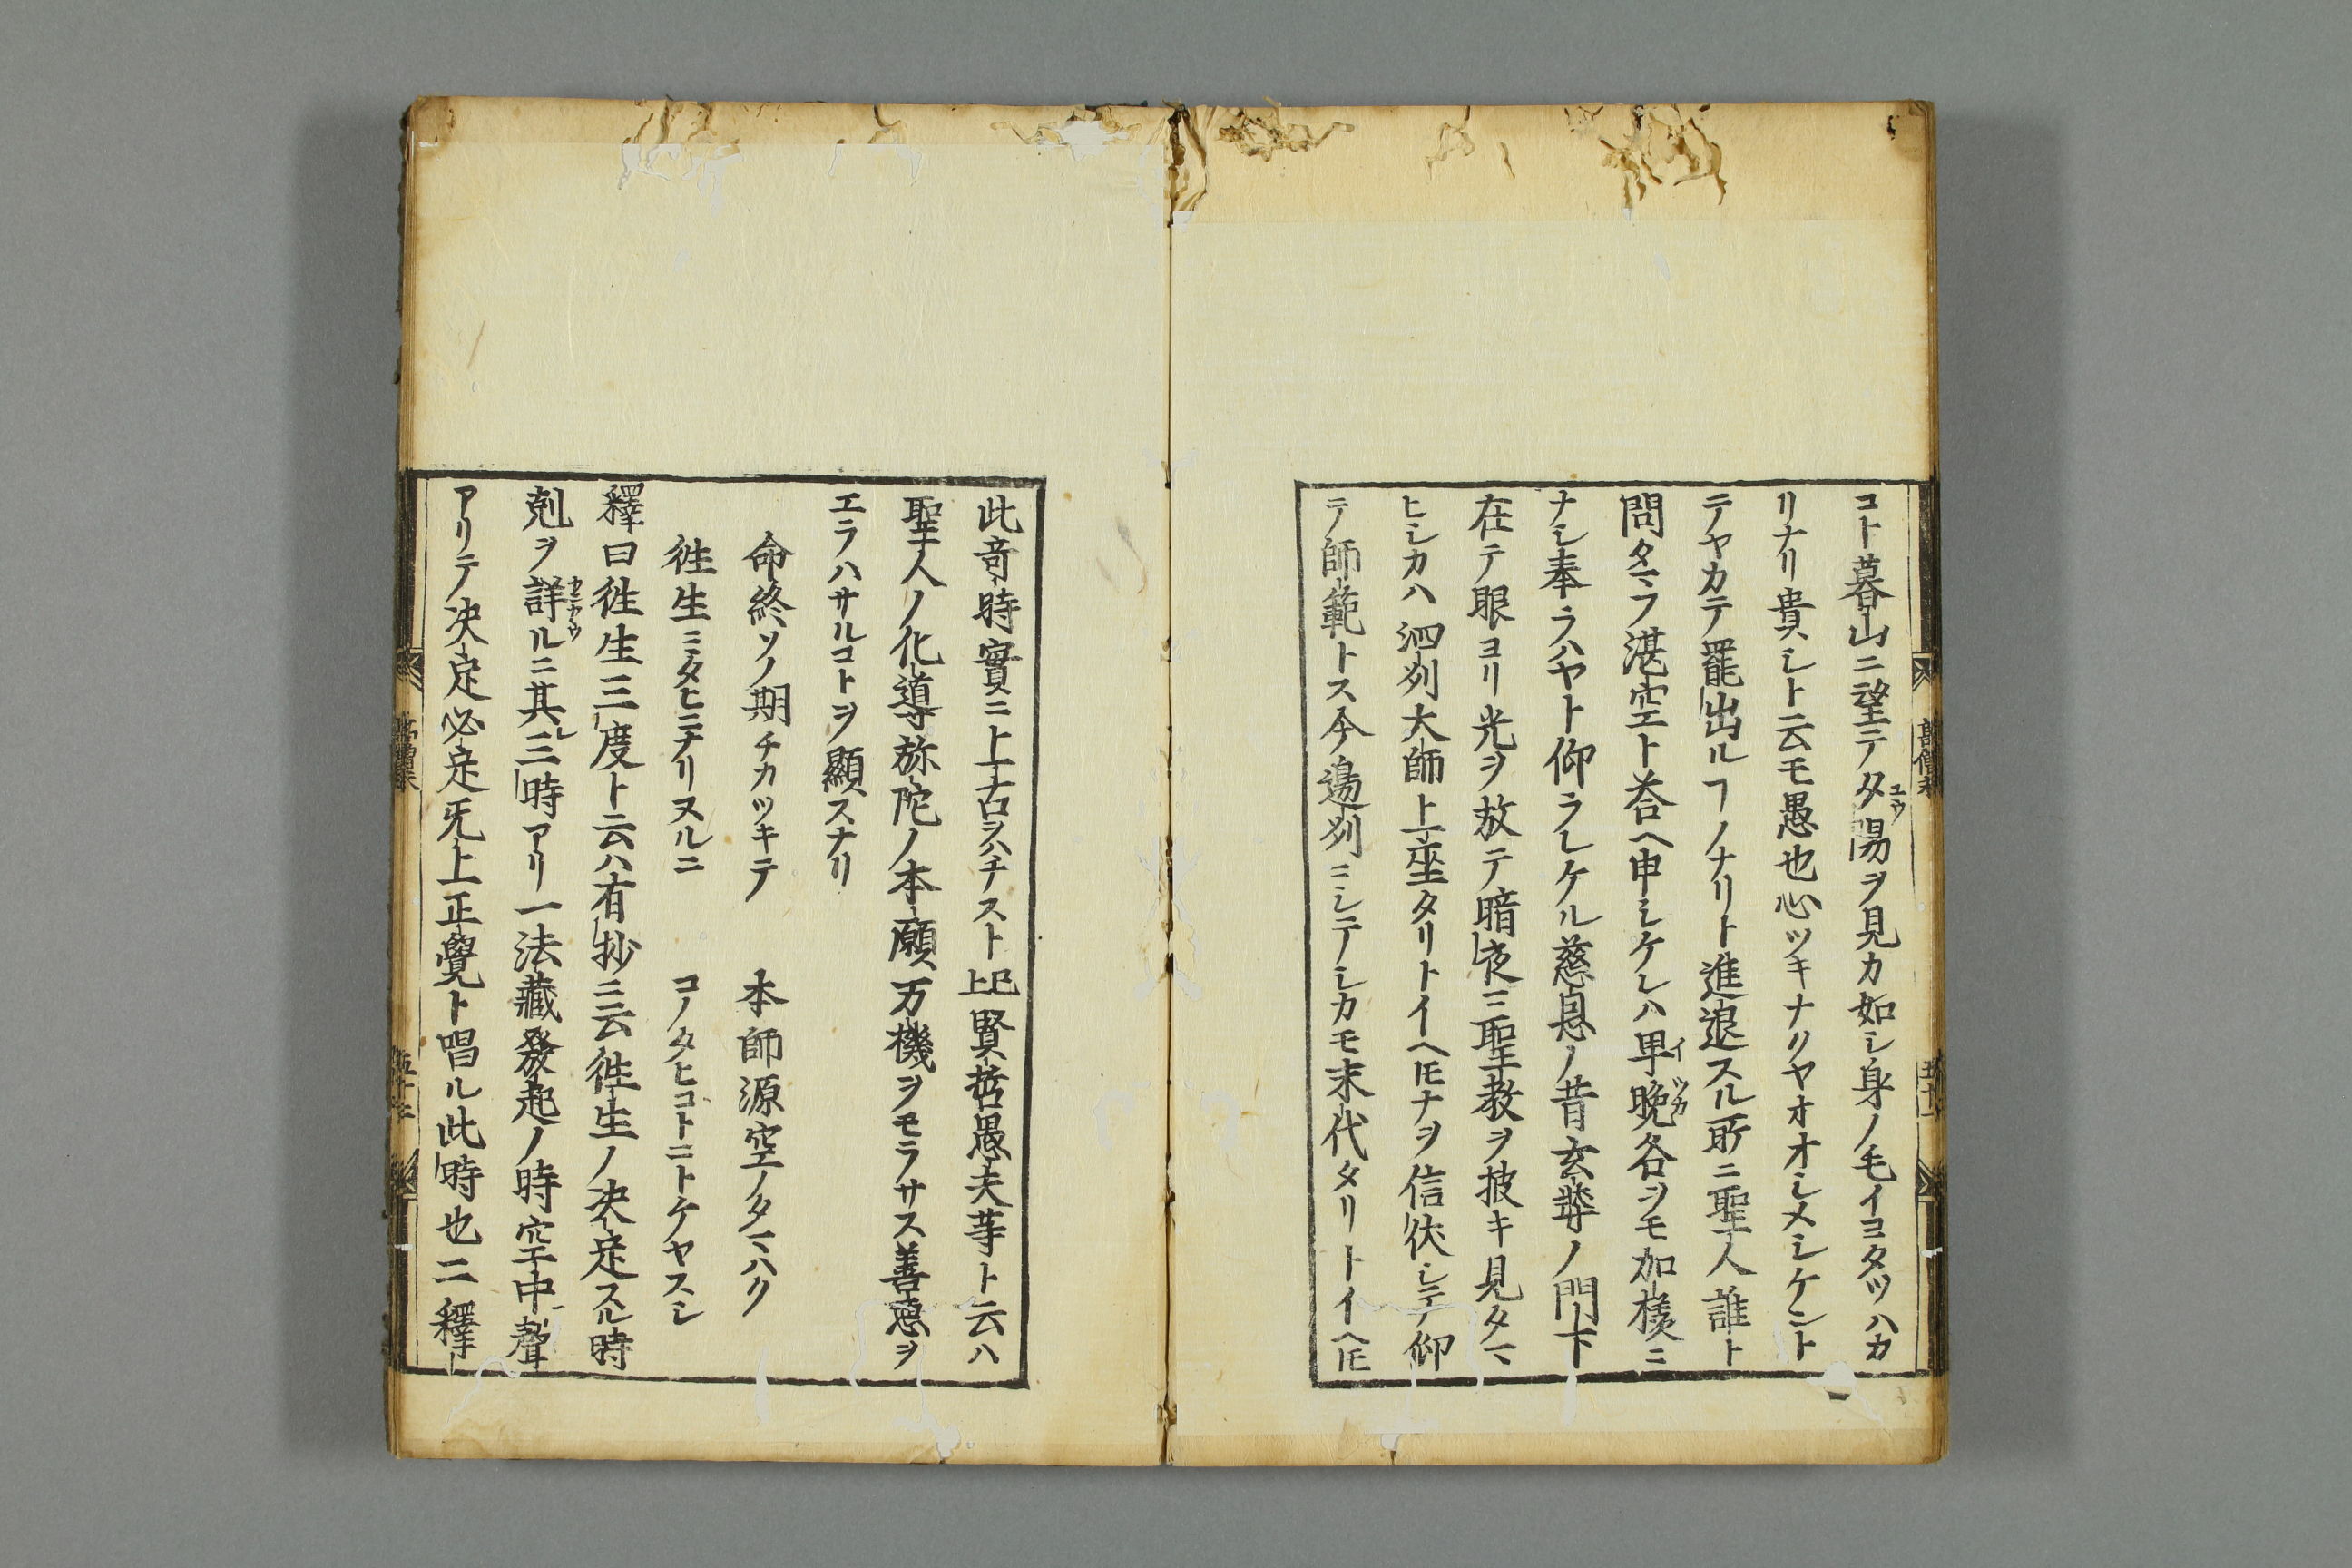 コト暮山ニ望テタ陽ヲ見カ如シ身ノ毛イヨタツハカ
リナリ貴シト云モ愚也心ツキナリヤオオシメシケント
テヤカテ罷出ルヿノナリト進退スル所ニ聖人誰ト
問タマフ湛空ト荅ヘ申シケレハ早晩各ヲモ加様ニ
ナシ奉ラハヤト仰ラレケル慈恩ノ昔玄弉ノ門下
在テ眼ヨリ光ヲ放テ暗夜ニ聖教ヲ披キ見タマ
ヒシカハ泗州大師上座タリトイヘ𪜈ナヲ信伏シテ仰
テ師範トス今邊州ニシテシカモ末代タリトイヘ𪜈
此竒時實ニ上古ヲハチスト已上賢哲愚夫䓁ト云ハ
聖人ノ化導弥陀ノ本願万機ヲモラサス善惡ヲ
エラハサルコトヲ顯スナリ
命終ソノ期チカツキテ 本師源空ノタマハク
徃生ミタヒニナリヌルニ コノタヒコトニトケヤスシ
釋曰徃生三度ト云ハ有抄ニ云徃生ノ决定スル時
剋ヲ詳ルニ其レ三時アリ一法藏發起ノ時空中聲
アリテ决定必定旡上正覺ト唱ル此時也二釋